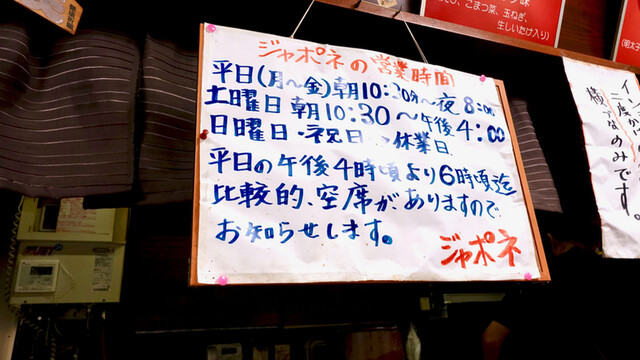 こまつ菜、玉ねぎ、
生しいたけ入り)
ジャポネの営業時間
平日(月〜金)朝10:30分〜夜8:00
土曜日 朝10:30〜午後4:00
日曜日・祝日→休業日
平日の午後4時頃より6時頃迄
比較的、空席がありますので
お知らせします。
ジャポネ
のみです。